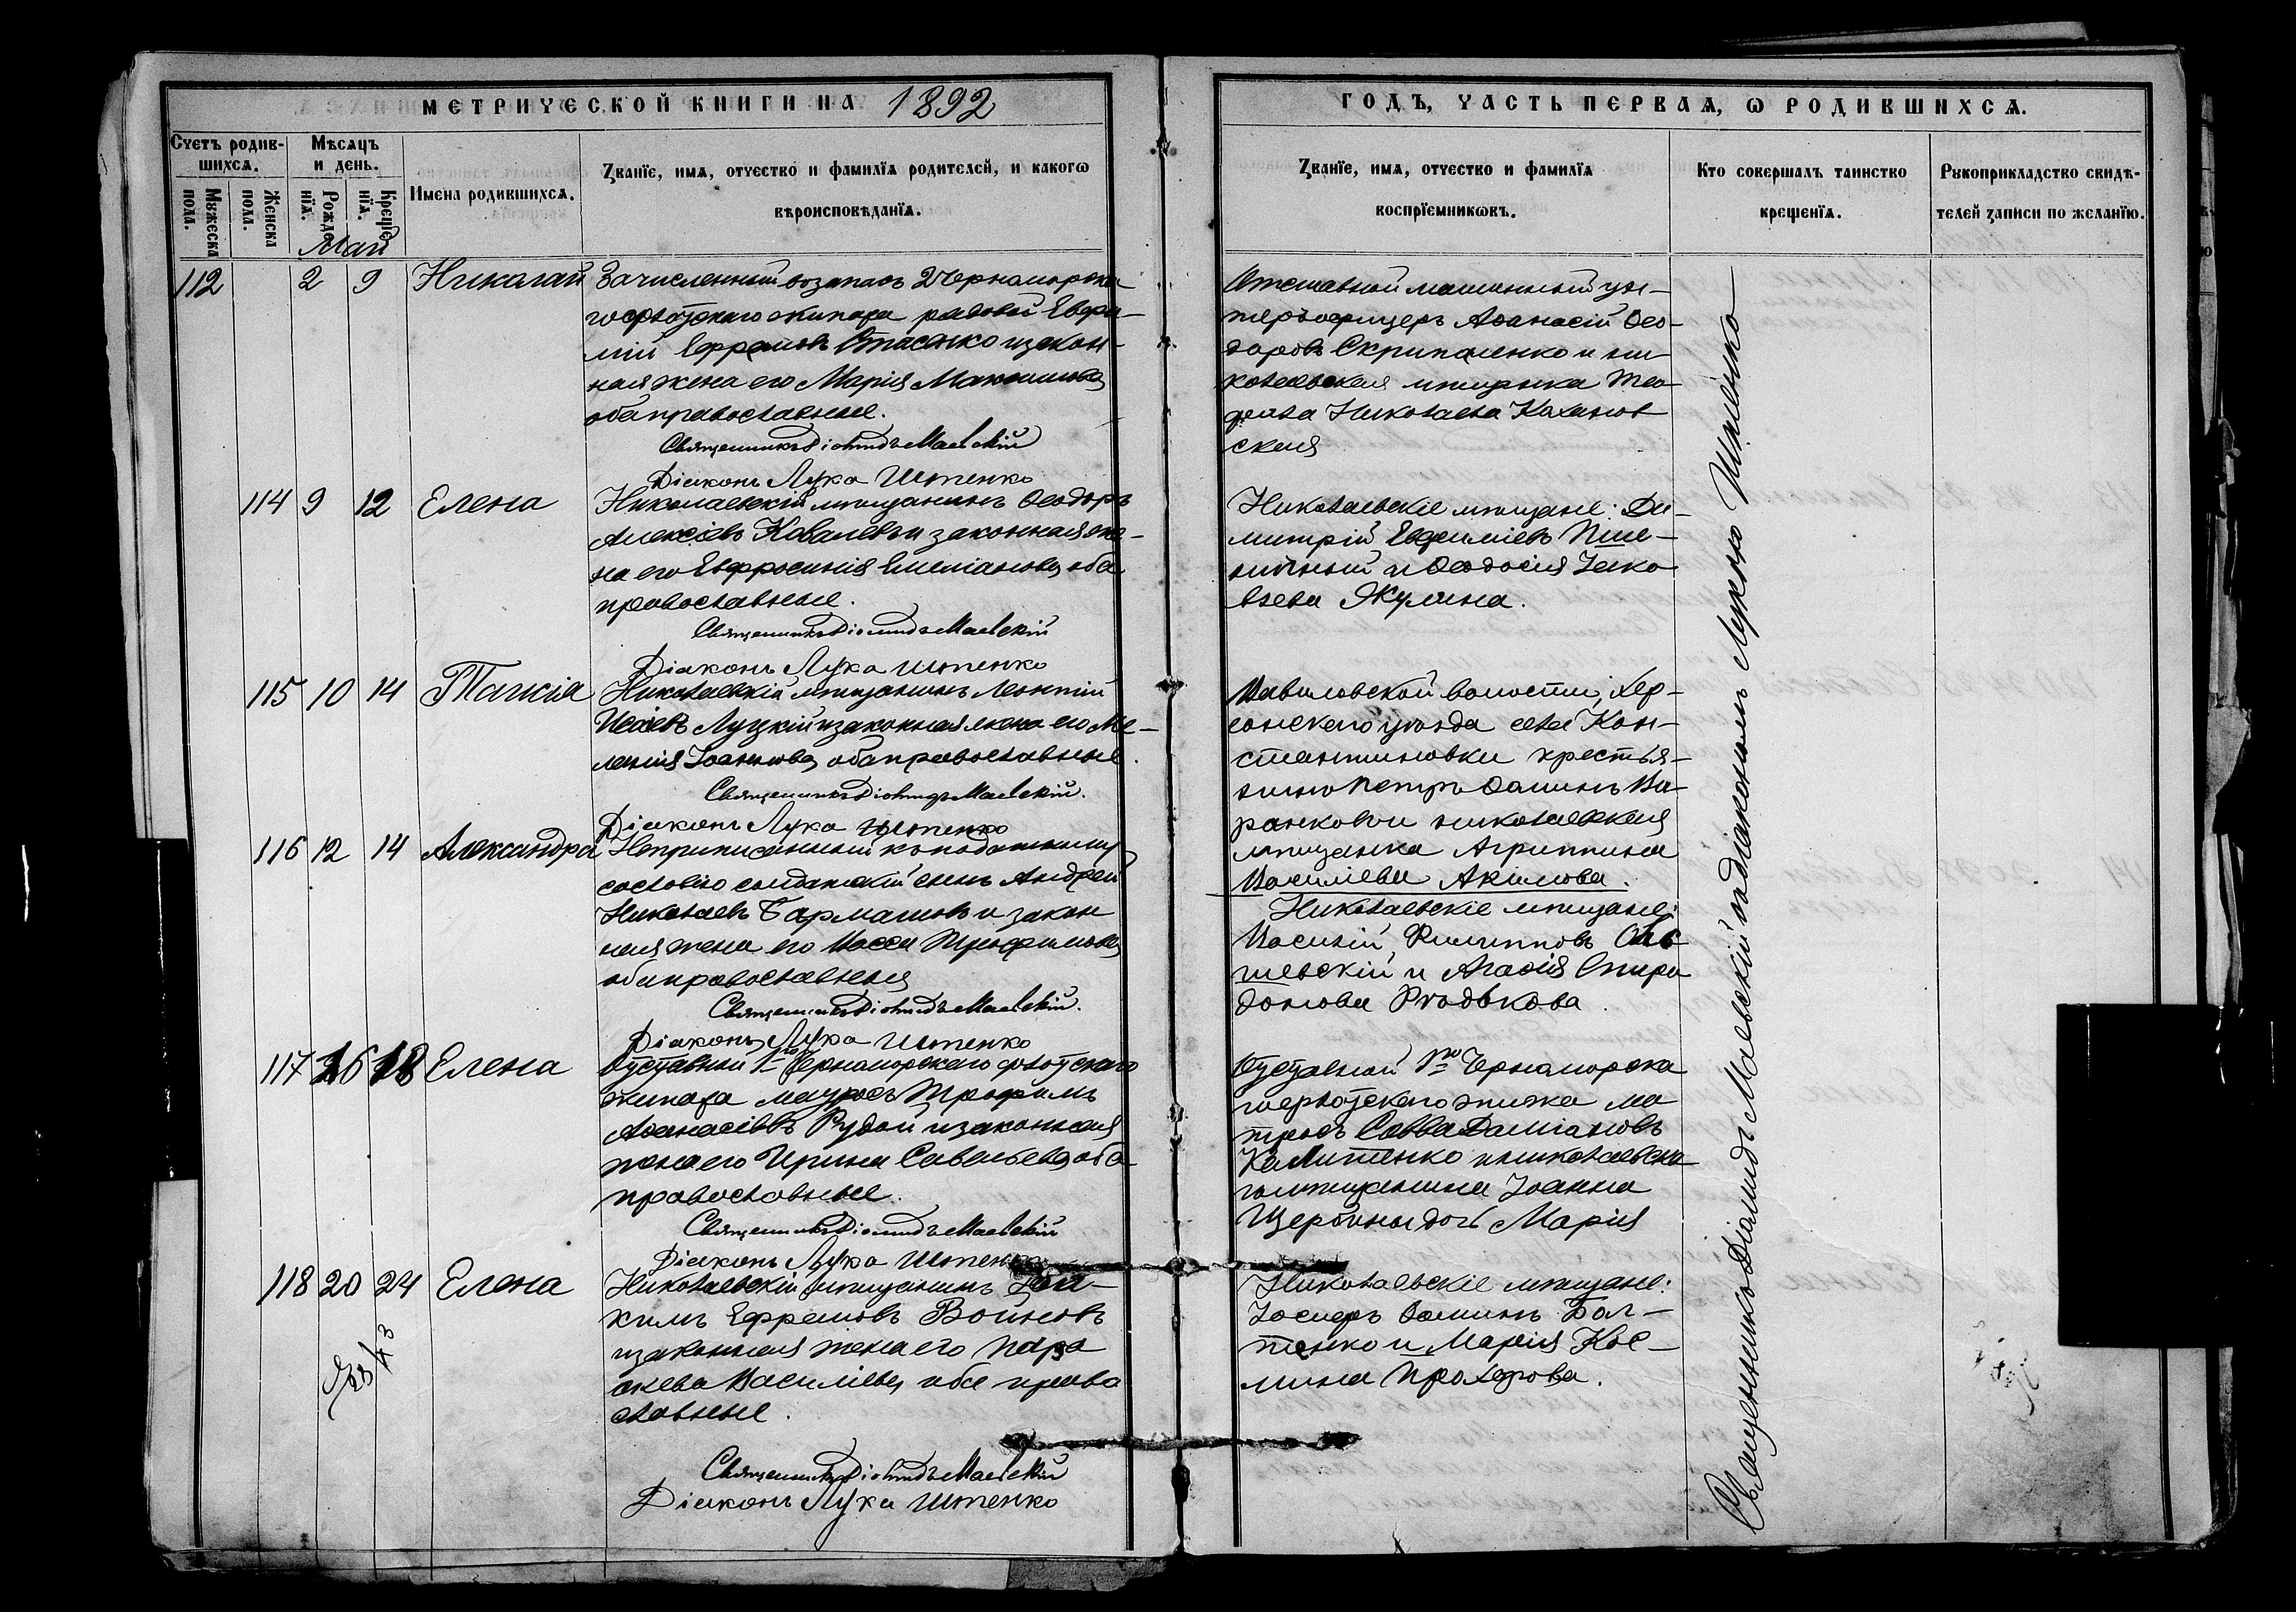 МЕТРИЧЕСКОЙ КНИГИ НА 1892
ГОДЪ, ЧАСТЬ ПЕРВАЯ, Ѡ РОДИВШИХСЯ.
Счетъ родив-
шихся.
Мужеска
пола.
Женска
пола.
Мѣсяцъ
и день.
Рожде
нїя.
Креще
нїя.
Май
Имена родившихся.
Званїе, имя, отчество и фамилїя родителей, и какогѡ
вѣроисповѣданїя.
Званїе, имя, отчество и фамилїя
воспрїемникѡвъ.
Кто совершалъ таинство
крещенїя.
Рукоприкладство свидѣ-
телей записи по желанїю.
112 2 9 Николай
Зачисленный въ запасъ 2 Черноморска
го флотскаго экипажа рядовой Евфи-
мій Ефремовъ Стасенко и закон-
ная жена его Марія Максимова
оба православные.
Священникъ Діомидъ Маевскій
Діаконъ Лука Штенко
Отставной машинный ун-
теръ офицеръ Аѳанасій Ѳео-
доровъ Скрипаленко и ни-
колаевская мѣщанка
Николаева Каханов
ская
114 9 12 Елена
Николаевскій мѣщанинъ Ѳеодоръ
Алексіевъ Ковалевъ и законная же-
на его Евфросинія Емеліанова, оба
православные.
Священникъ Діомидъ Маевскій
Діаконъ Лука Штенко
Николаевскіе мѣщане: Ди-
митрій Евфиміевъ Пше-
ничный и Ѳеодосія Яко
влева Якулина.
115 10 14 Таисія
Николаевскій мѣщанинъ Леонтій
Исаевъ Луцкій и законная жена его Ме-
ланія Іоаннова, оба православные.
Священникъ Діомидъ Маевскій.
Діаконъ Лука Штенко
Вавиловской волости, Хер-
сонскаго уѣзда села Кон-
стантиновки крестья-
нинъ Петръ Ѳоминъ Ва-
ранковъ и николаевская
мѣщанка Агриппина
Василіева Акимова.
116 12 14 Александра
Неприписанный къ податному
сословію солдатскій сынъ Андрей
Николаевъ Бармашовъ и закон
ная жена его Васса Трофимова
оба православныя
Священникъ Діомидъ Маевскій.
Діаконъ Лука Штенко
Николаевскіе мѣщане:
Василій Филипповъ
шевскій и Агаѳія Спири
донова Родькова.
117 16 18 Елена
Отставной 1го Черноморскаго флотскаго
экипажа матросъ Трофимъ
Аѳанасіевъ Рудой и законная
жена его Ирина Савельева, оба
православные.
Священникъ Діомидъ Маевскій
Діаконъ Лука Штенко
Отставной 1го Черноморска
го флотскаго экипажа ма
тросъ Савва Даміановъ
Калитенко и николаевска
го мѣщанина Іоанна
Щербины дочь Марія
118 20 24 Елена
Николаевскій мѣщанинъ Іоа-
кимъ Ефремовъ Войновъ
и законная жена его Пара
скева Василіева, оба право
славные.
Священникъ Діомидъ Маевскій
Діаконъ Лука Штенко
Николаевскіе мѣщане:
Іосифъ Ѳоминъ Бол-
тенко и Марія Кос-
мина Прохорова.
Священникъ Діомидъ Маевскій съ діакономъ Лукою Штенко